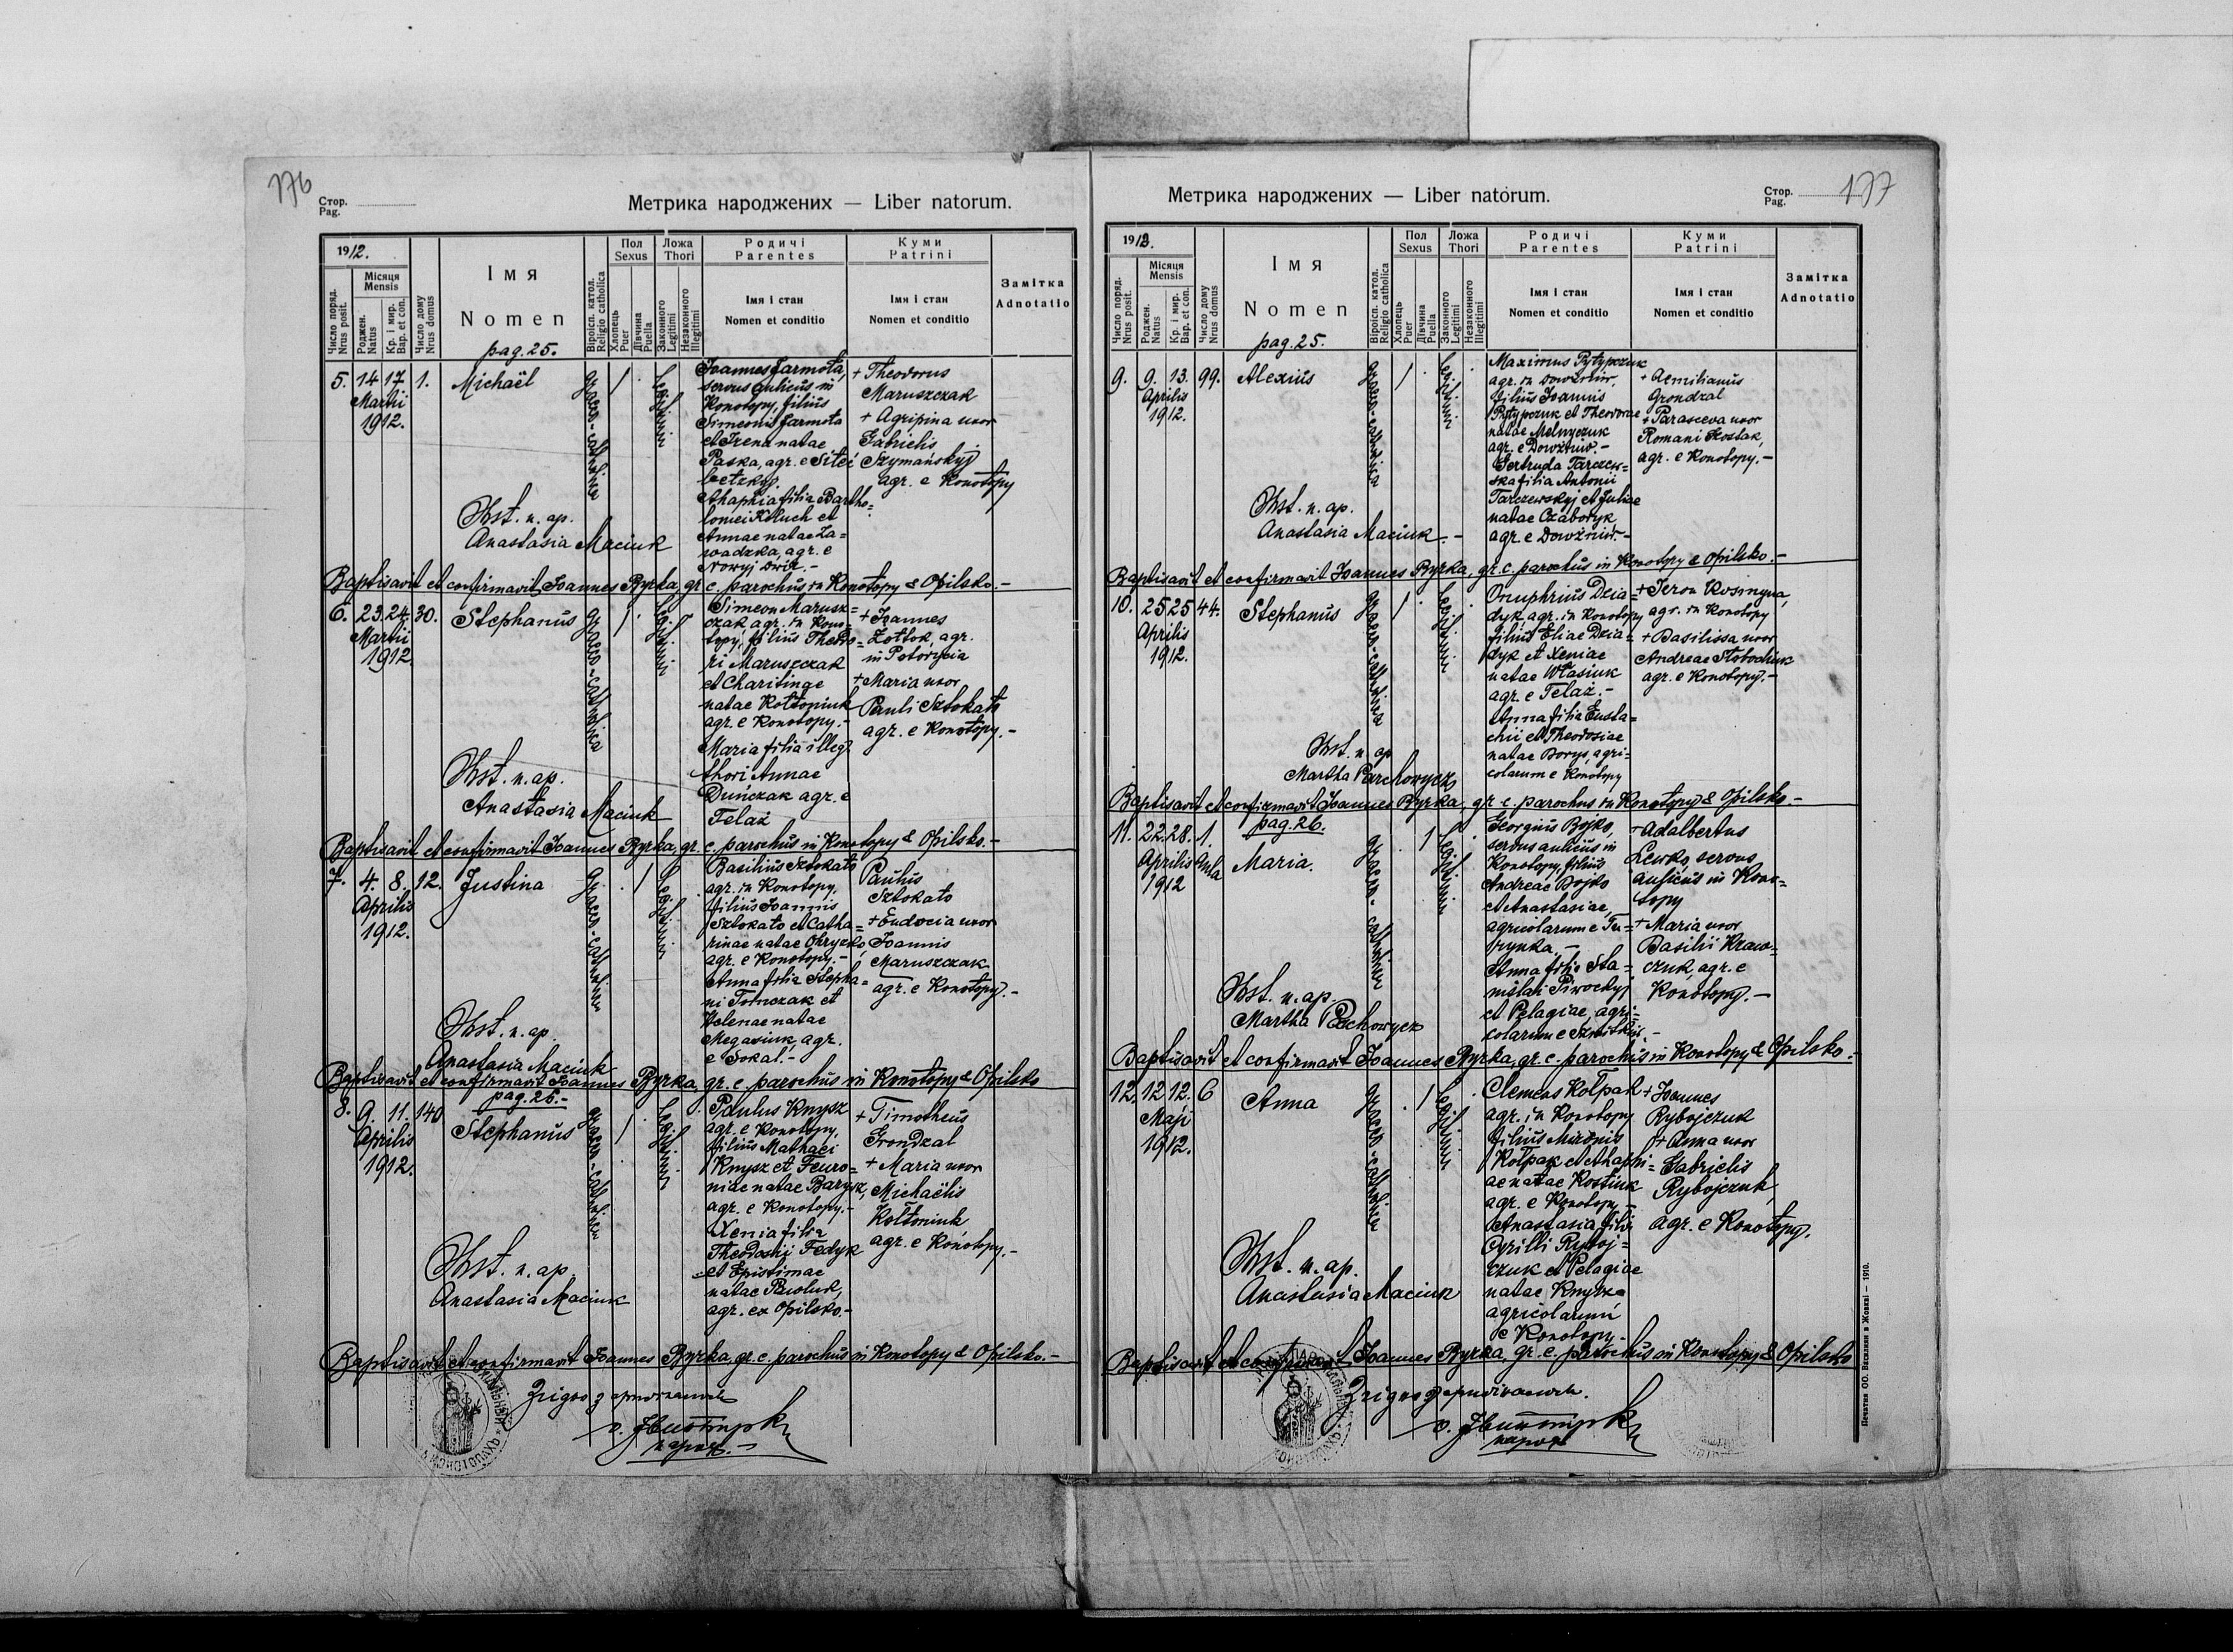 176
Стор.
Pag.
Метрика народжених — Liber natorum.
1912.
Число поряд.
Nrus posit.
Місяця
Mensis
Роджен.
Natus
Кр. і мир.
Bap. et con.
Число дому
Nrus domus
Імя
Nomen
pag. 25.
Віроісп. катол.
Religio catholica
Пол
Sexus
Хлопець
Puer
Дівчина
Puella
Ложа
Thori
Законного
Legitimi
Незаконного
Illegitimi
Родичі
Parentes
Імя і стан
Nomen et conditio
Куми
Patrini
Імя і стан
Nomen et conditio
Замітка
Adnotatio
5. 14 17 1. Michaël
Martii
1912.
graeco-catholica
1 .
Legitimi
Joannes Jarmola,
servus aulicus in
Konotopy, filius
Simeonis Jarmola
et Irena natae
Paska, agr. e
Agaphia filia Bartho=
lomei Kluch et
Annae natae Za=
wadzka, agr. e
Nowyj Dwir.-
+ Theodorus
Maruszczak
+ Agripina uxor
Gabrielis
Szymańskyj
agr. e Konotopy
Obst. n. ap.
Anastasia Maciuk
Baptisavit et confirmavit Joannes Pyrka, gr. c. parochus in Konotopy & Opilsko.-
6. 23. 24. 30. Stephanus
Martii
1912.
graeco-catholica
1 .
Legitimi
Simeon Marusz=
czak agr. in Kono=
topy, filius Theodo=
ri Maruszczak
et Charitinae
natae Kołtoniuk
agr. e Konotopy.-
Maria filia illeg.
thori Annae
Duńczak agr. e
Telaż
+ Joannes
Żołtok agr.
in Potorycia
+ Maria uxor
Pauli Sztokało
agr. e Konotopy.-
Obst. n. ap.
Anastasia Maciuk
Baptisavit et confirmavit Joannes Pyrka, gr. c. parochus in Konotopy & Opilsko.-
7. 4. 8. 12. Justina
Aprilis
1912.
graeco-catholica
. 1
Legitimi
Basilius Sztokało
agr. in Konotopy,
filius Joannis
Sztokało et Catha=
rinae natae Ohryzko,
agr. e Konotopy.-
Anna filia Stepha=
ni Tomczak et
Helenae natae
agr.
e Sokal.-
Paulus
Sztokało
+ Eudocia uxor
Joannis
Maruszczak
agr. e Konotopy.-
Obst. n. ap.
Anastasia Maciuk
Baptisavit et confirmavit Joannes Pyrka, gr. c. parochus in Konotopy & Opilsko
pag. 26.-
8. 9. 11. 140 Stephanus
Aprilis
1912.
graeco-catholica
1 .
Legitimi
Paulus Knysz
agr. e Konotopy,
filius Mathaei
Knysz et Feuro=
niae natae Barysz,
agr. e Konotopy.-
Xenia filia
Theodosij Fedyk
et Epistimae
natae Pawluk,
agr. ex Opilsko.-
+ Timotheus
Grondzal
+ Maria uxor
Michaëlis
Kołtoniuk
agr. e Konotopy.-
Obst. n. ap.
Anastasia Maciuk
Baptisavit et confirmavit Joannes Pyrka, gr. c. parochus in Konotopy & Opilsko.-
177
Метрика народжених — Liber natorum.
Стор.
Pag.
1912.
Число поряд.
Nrus posit.
Місяця
Mensis
Роджен.
Natus
Кр. і мир.
Bap. et con.
Число дому
Nrus domus
Імя
Nomen
pag. 25.
Віроісп. катол.
Religio catholica
Пол
Sexus
Хлопець
Puer
Дівчина
Puella
Ложа
Thori
Законного
Legitimi
Незаконного
Illegitimi
Родичі
Parentes
Імя і стан
Nomen et conditio
Куми
Patrini
Імя і стан
Nomen et conditio
Замітка
Adnotatio
9. 9. 13. 99. Alexius
Aprilis
1912.
graeco-catholica
1 .
Legitimi
Maximus Pytypczuk
agr. in Dowżniw,
filius Joannis
Pytypczuk et Theodorae
natae Melnyczuk
agr. e Dowżniw.-
Gertruda Tarczew=
ska filia Antonii
Tarczewskyj et Juliae
natae Czaboryk
agr. e Dowżniw.-
+ Aemilianus
Grondzal
+ Parasceva uxor
Romani Kostak,
agr. e Konotopy.-
Obst. n. ap.
Anastasia Maciuk.-
Baptisavit et confirmavit Joannes Pyrka, gr. c. parochus in Konotopy & Opilsko.-
10. 25 25 44. Stephanus
Aprilis
1912.
graeco-catholica
1 .
Legitimi
Onuphrius Dzia=
dyk, agr. in Konotopy
filius Eliae Dzia=
dyk et Xeniae
natae Własiuk
agr. e Telaż.-
Anna filia Eusta=
chii et Theodosiae
natae Borys, agri=
colarum e Konotopy
+ Jeron Kosingna,
agr. in Konotopy
+ Basilissa uxor
Andreae Słobodiuk
agr. e Konotopy.-
Obst. n. ap
Martha Parchowycz
Baptisavit et confirmavit Joannes Pyrka, gr. c. parochus in Konotopy & Opilsko-
pag. 26.
11. 22. 28. 1. Maria.
Aprilis Aula
1912
graeco-catholica
. 1
Legitimi
Georgius Bojko,
servus aulicus in
Konotopy, filius
Andreae Bojko
et Anastasiae,
agricolarum e Tu=
rynka.-
Anna filia Sta=
nislai Piwockyj
et Pelagiae, agri=
colarum e
+ Adalbertus
Lewko, servus
aulicus in Kono=
topy
+ Maria uxor
Basilii Kraw=
czuk, agr. e
Konotopy.-
Obst. n. ap.
Martha Pachowycz
Baptisavit et confirmavit Joannes Pyrka, gr. c. parochus in Konotopy & Opilsko.-
12. 12 12. 6 Anna
Maji
1912.
graeco-catholica
. 1
Legitimi
Clemens Kołpak
agr. in Konotopy
filius Mironis
Kołpak et Agaphi=
ae natae Kostiuk
agr. e Konotopy.-
Anastasia filia
Cyrilli Ryboj=
czuk et Pelagiae
natae Knysz
agricolarum
e Konotopy.-
+ Joannes
Rybojczuk
+ Anna uxor
Gabrielis
Rybojczuk,
agr. e Konotopy.
Obst. n. ap.
Anastasia Maciuk
Baptisavit et confirmavit Joannes Pyrka, gr. c. parochus in Konotopy & Opilsko
Печатня ОО. Василиян в Жовкві — 1910.